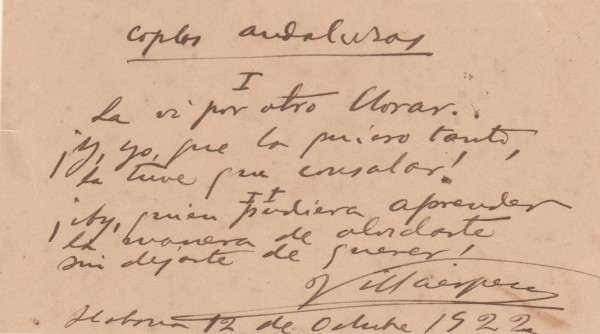 Coplas andaluzas
I
La vi por otro llorar..
¡Y, yo, que la quiero tanto,
la tuve que consolar!
II
¡Ay, quien pudiera aprender
la manera de olvidarte
sin dejarte de querer!
Villaespesa
Habana 12 de Octubre 1922